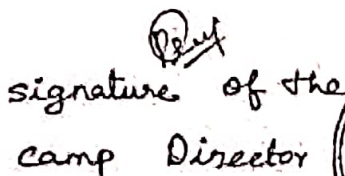 signature of the
camp Director